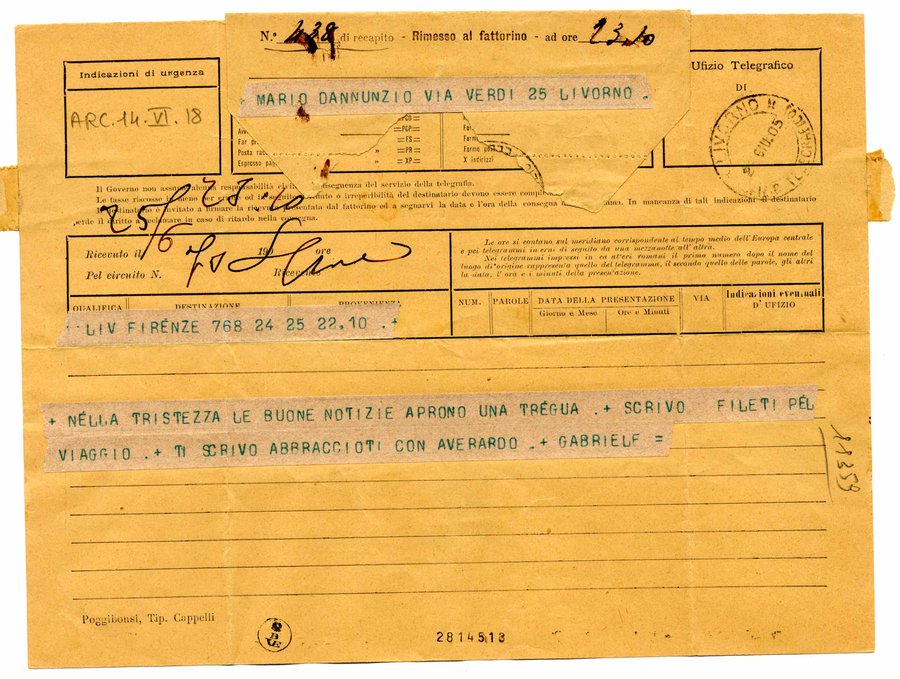 N.º 438 di recapito - Rimesso al fattorino - ad ore 23.10
Indicazioni di urgenza
Ufizio Telegrafico
DI
ARC. 14. VI. 18
MARIO DANNUNZIO VIA VERDI 25 LIVORNO .
LIVORNO
Il Governo non assume alcuna responsabilità in conseguenza del servizio della telegrafia.
Le tasse riscosse in meno per errore od in seguito a rifiuto o irreperibilità del destinatario devono essere
Il destinatario è invitato a firmare la ricevuta presentata dal fattorino ed a segnarvi la data e l'ora della consegna In mancanza di tali indicazioni il destinatario
perde il diritto a reclamare in caso di ritardo nella consegna.
25/6
Ricevuto il 190 ore
Pel circuito N. Ricevente
Le ore si contano sul meridiano corrispondente al tempo medio dell'Europa centrale
e pei telegrammi in erni di seguito da una mezzanotte all'altra.
Nei telegrammi impressi in ca atteri romani il primo numero dopo il nome del
luogo di origine rappresenta quello del telegramma, il secondo quello delle parole, gli altri
la data, l'ora e i minuti della presentazione.
QUALIFICA DESTINAZIONE PROVENIENZA NUM. PAROLE DATA DELLA PRESENTAZIONE VIA Indicazioni eventuali
Giorno e Mese Ore e Minuti D' UFIZIO
LIV FIRENZE 768 24 25 22.10 .+
+ NELLA TRISTEZZA LE BUONE NOTIZIE APRONO UNA TREGUA .+ SCRIVO FILETI PEL
VIAGGIO .+ TI SCRIVO ABBRACCIOTI CON AVERARDO .+ GABRIELF =
11359
Poggibonsi, Tip. Cappelli
2814513